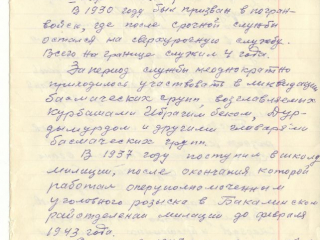 В 1930 году был призван в погран-
войска, где после срочной службы
остался на сверхсрочную службу.
Всего на границе служил 4 года.
За период службы неоднократно
приходилось участвовать в ликвидации
басмаческих групп, возглавляемых
курбашами Ибрагим беком, Дур-
дымурдом и другими главарями
басмаческих групп.
В 1937 году поступил в школу
милиции, после окончания которой
работал оперуполномоченным
уголовного розыска в Бакалинском
райотделении милиции до февраля
1943 года.